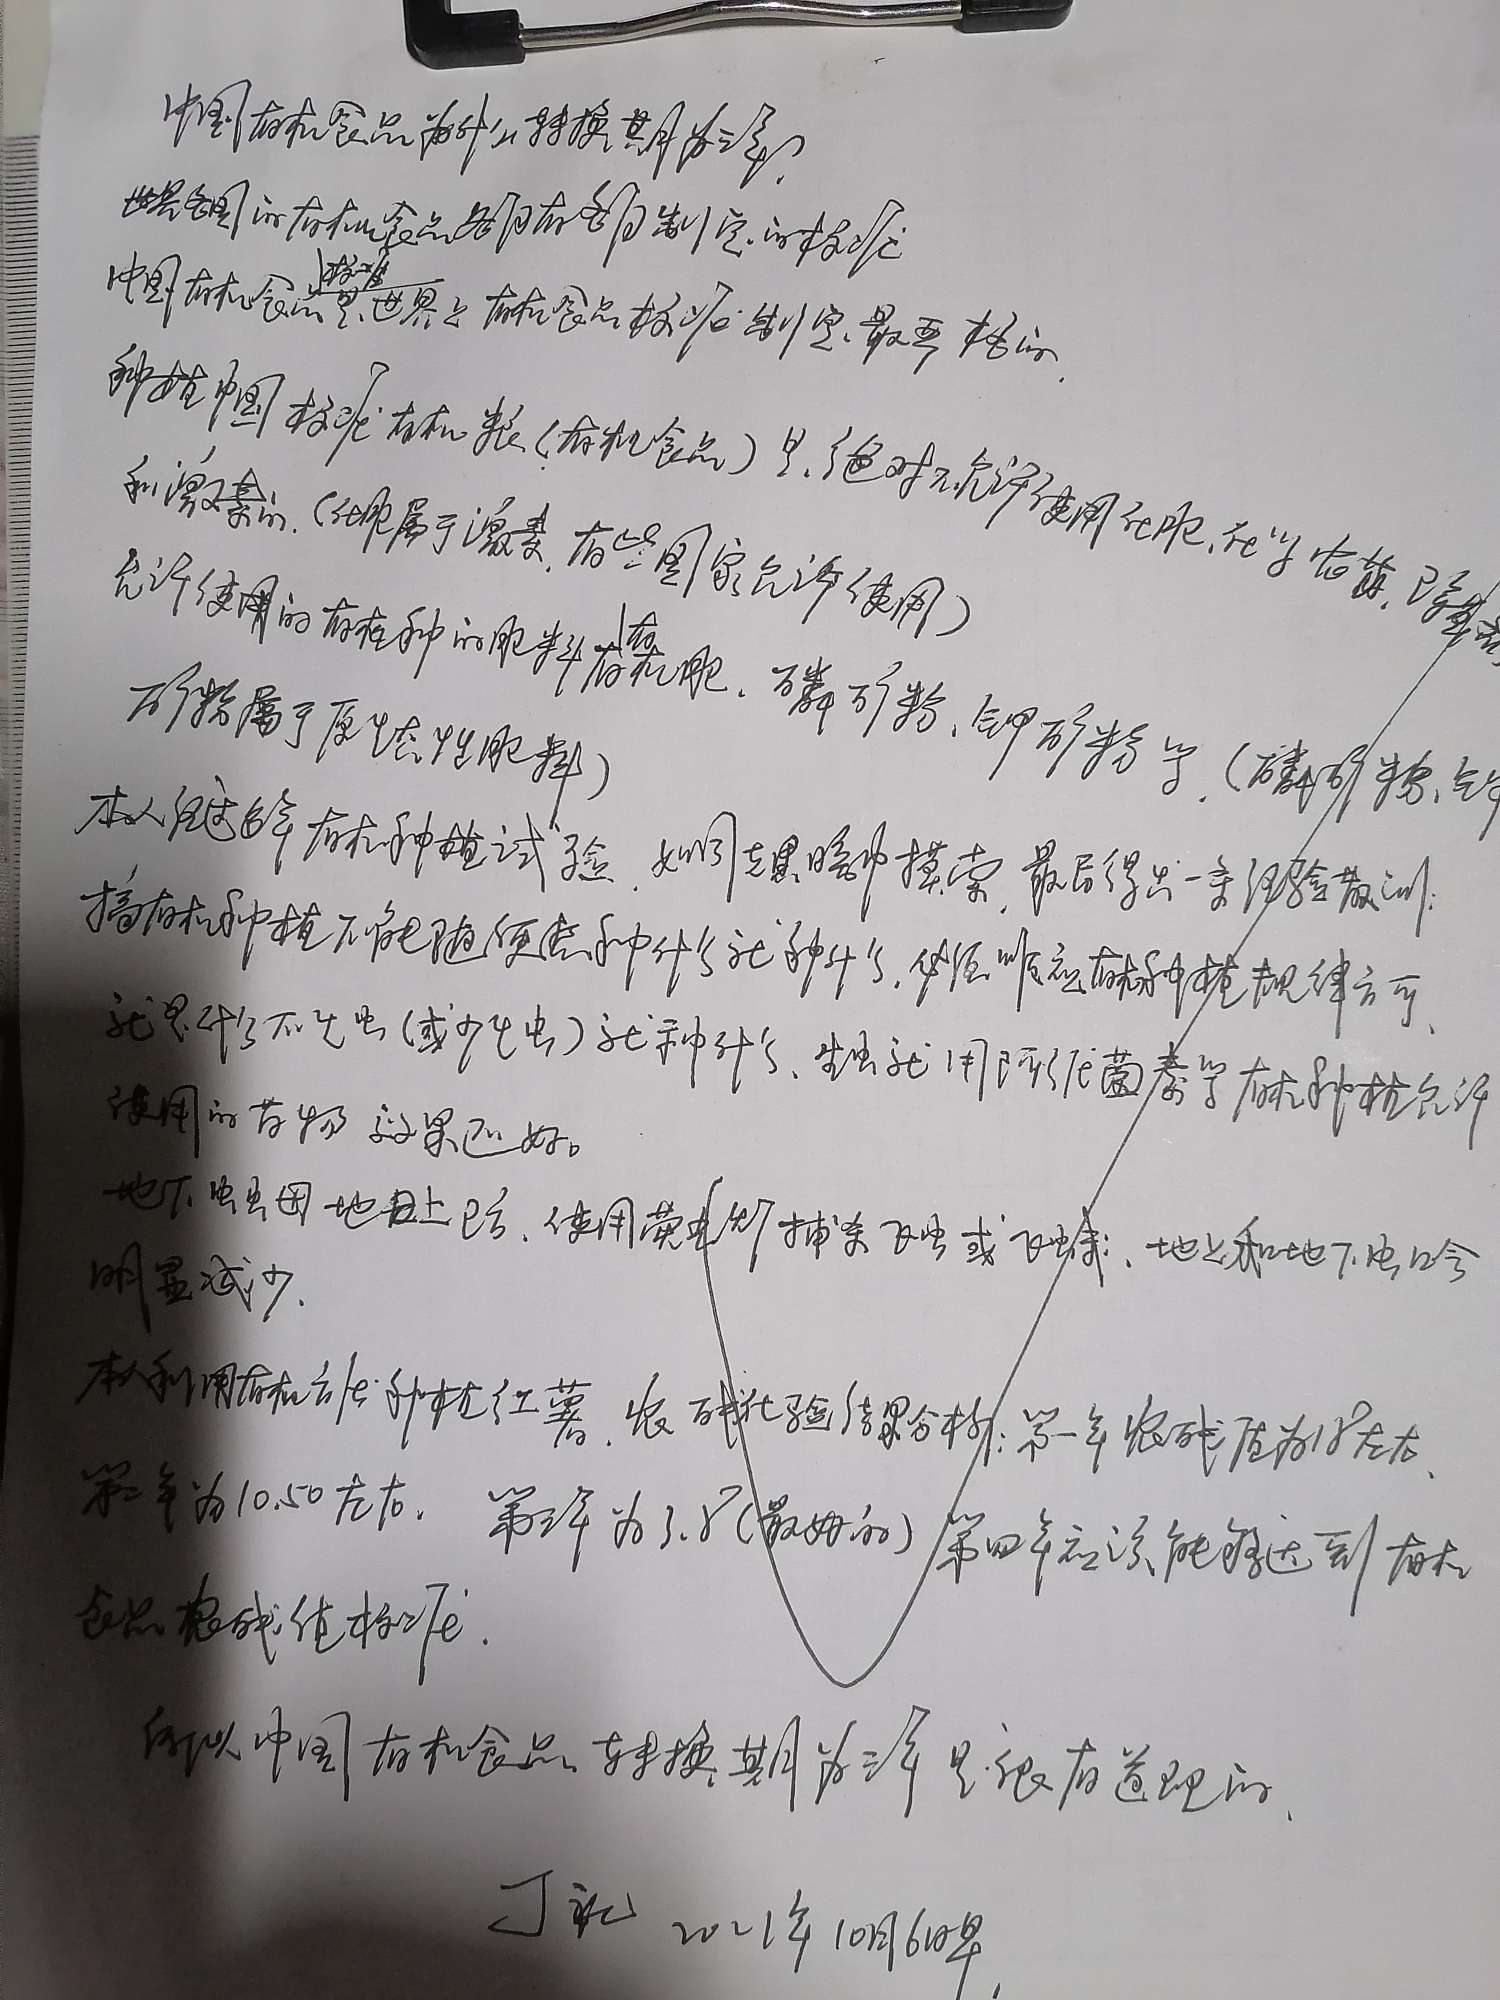 中国有机食品为什么转换期为三年?
世界各国的有机食品各自有各自制定的标准
中国有机食品标准是世界上有机食品标准制定最严格的.
种植中国标准有机粮(有机食品)是绝对不允许使用化肥、化学农药、除草剂
和激素的.(化肥属于激素,有些国家允许使用)
允许使用的有机种的肥料有有机肥、磷矿粉、钾矿粉等.(磷矿粉、钾
矿粉属于原生态性肥料)
本人经过多年有机种植试验,如同黑暗中摸索,最后得出一条经验教训:
搞有机种植不能随便想种什么就种什么,必须顺应有机种植规律方可、
就是什么不生虫(或少生虫)就种什么、生虫就用阿维菌素等有机种植允许
使用的药物效果也好。
地下虫害因地上防、使用荧光灯捕杀飞虫或飞蛾、地上和地下虫口会
明显减少.
本人利用有机方法种植红薯,农残化验结果分析:第一年农残值为18左右、
第二年为10.50左右. 第三年为3.8(最好的)第四年应该能够达到有机
食品农残值标准.
所以中国有机食品转换期为三年是很有道理的、
丁 2021年10月6日早.